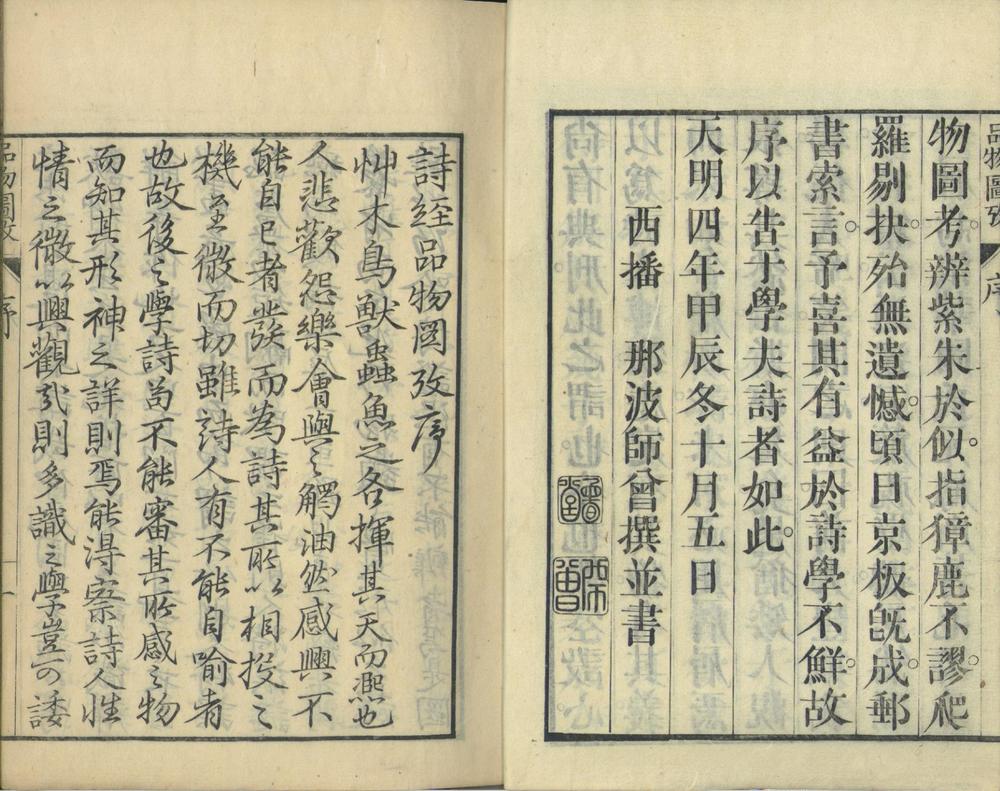 物圖考辨紫朱於似。指獐鹿不謬。爬
羅剔抉殆無遺憾。頃日京板既成。郵
書索言。予喜其有益於詩學不鮮。故
序以告于學夫詩者如此。
天明四年甲辰冬十月五日
西播 那波師曾撰並書
詩經品物圖攷序
艸木鳥獸蟲魚之各揮其天而凞也
人悲歡怨樂會與之觸油然感興不
能自已者發而為詩其所以相投之
機至微而切雖詩人有不能自喻者
也故後之學詩苟不能審其所感之物
而知其形神之詳則焉能得察詩人性
情之微以興觀哉則多識之學豈可諉
品物圖攷
序
一